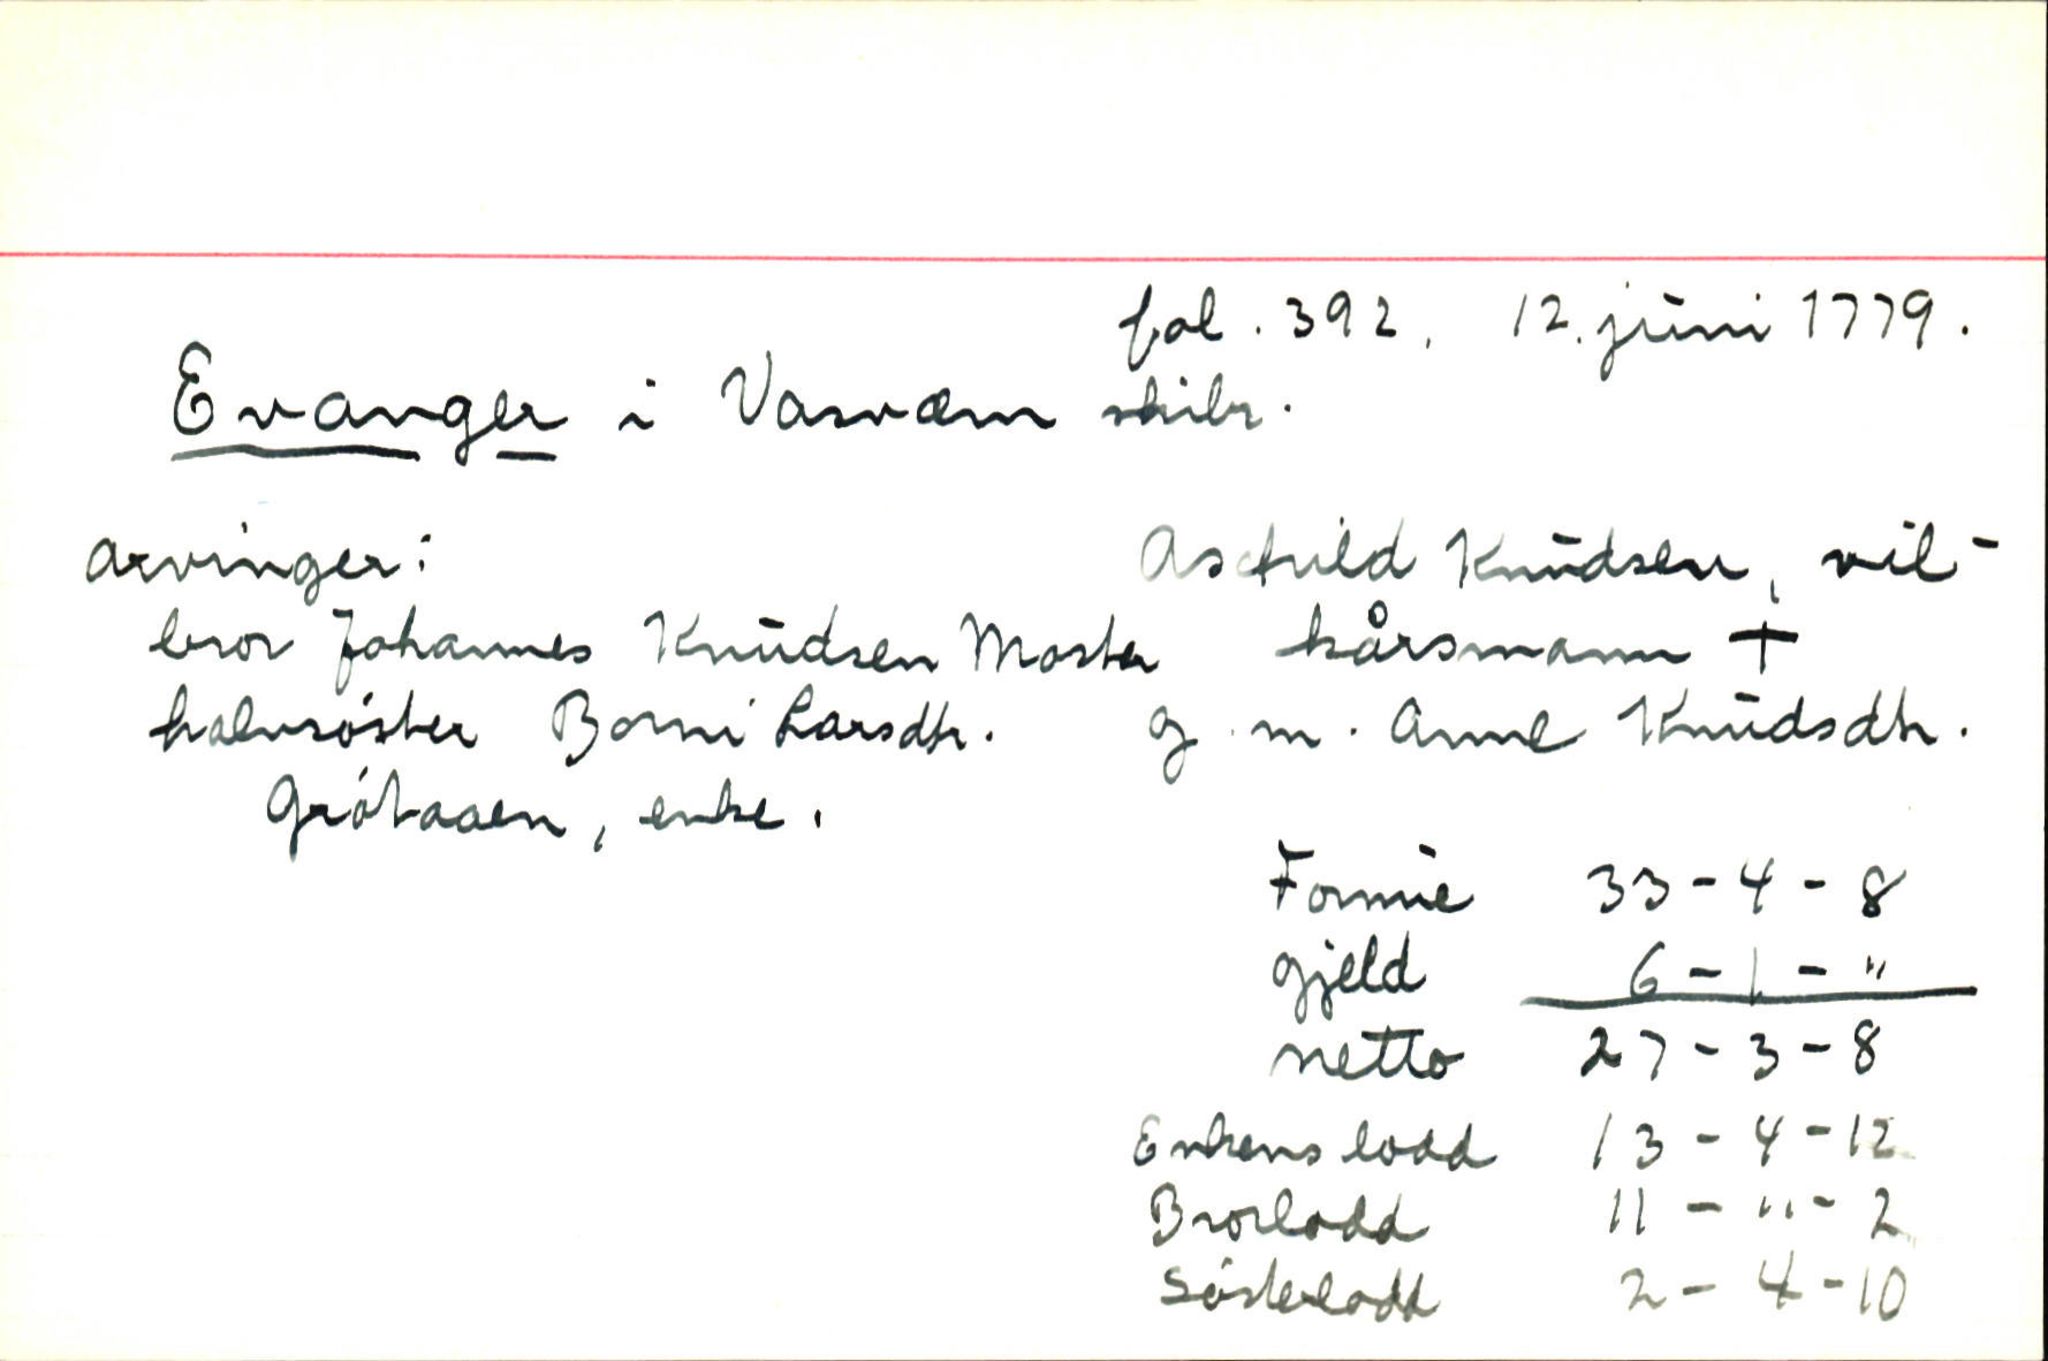 fol. 392, 12. juni 1779.
Evanger i Vasværn skibr.
Arvinger:
bror Johannes Knudsen Moster
halvsöster Borni Larsdtr.
Grötaaen, enke.
Askield Knudsen, vil-
kårsmann +
g. m. Anne Knudsdtr.
Formue 33 - 4 - 8
gjeld 6 - 1 - "
netto 27 - 3 - 8
Enkens lodd 13 - 4 - 12
Brorlodd 11 - " - 2
Søsterlodd 2 - 4 - 10